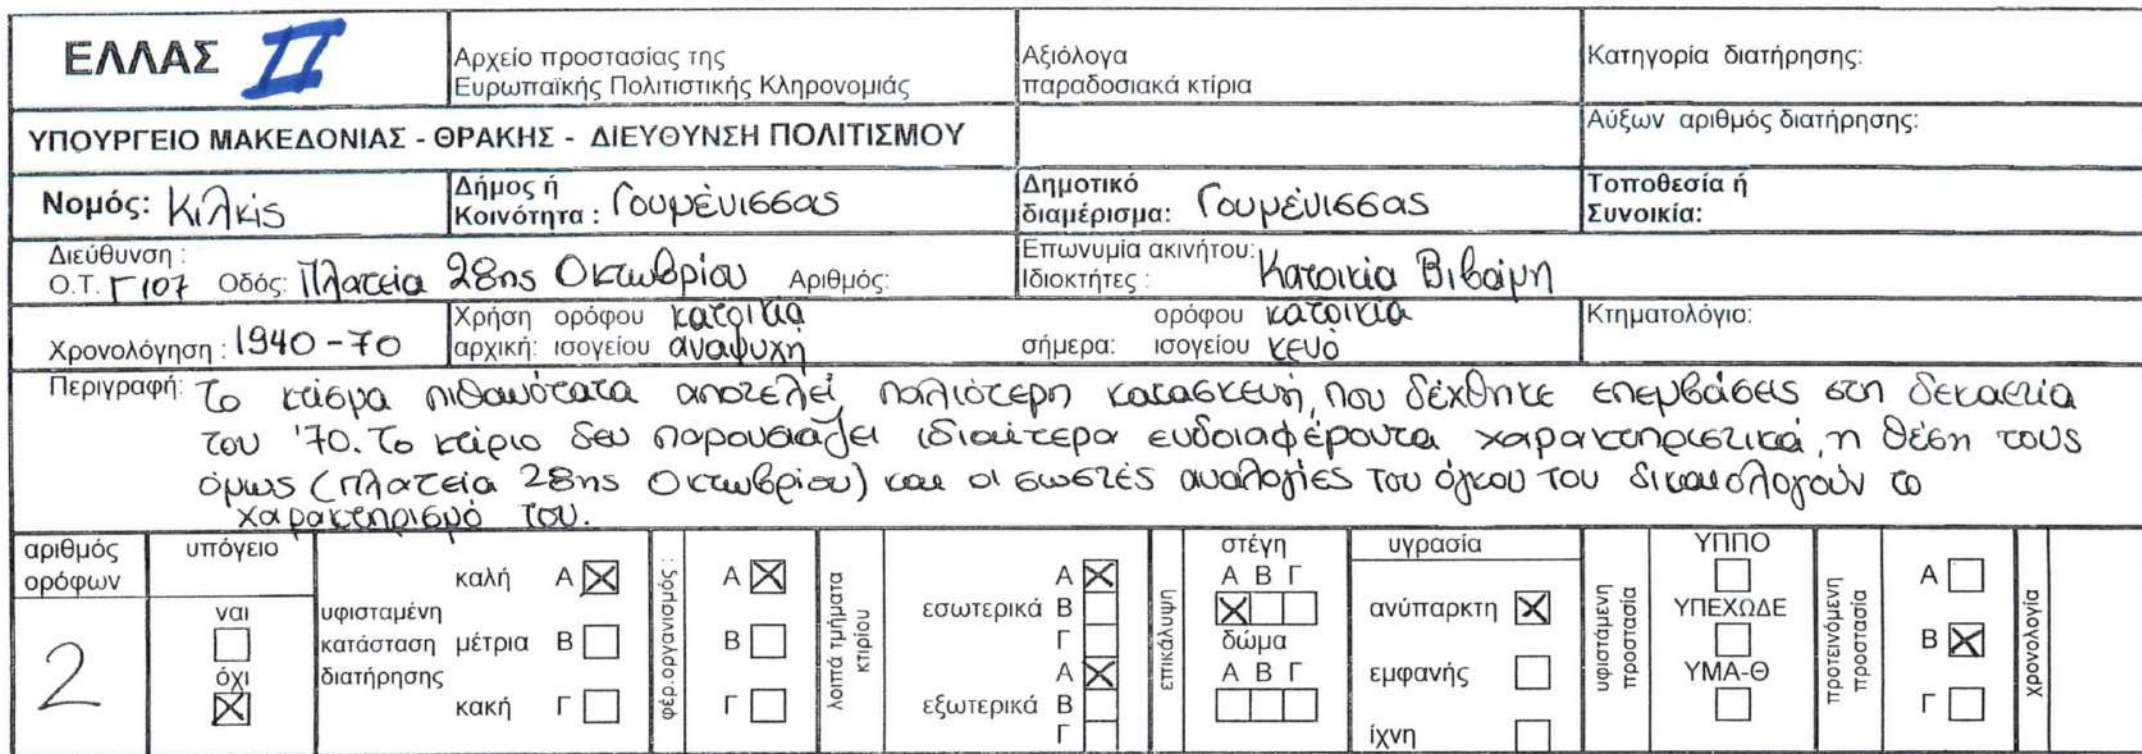 ΕΛΛΑΣ II
Αρχείο προστασίας της
Ευρωπαϊκής Πολιτιστικής Κληρονομιάς
Αξιόλογα
παραδοσιακά κτίρια
Κατηγορία διατήρησης:
ΥΠΟΥΡΓΕΙΟ ΜΑΚΕΔΟΝΙΑΣ - ΘΡΑΚΗΣ - ΔΙΕΥΘΥΝΣΗ ΠΟΛΙΤΙΣΜΟΥ
Αύξων αριθμός διατήρησης:
Νομός: Κιλκίς
Δήμος ή
Κοινότητα : Γουμένισσας
Δημοτικό
διαμέρισμα: Γουμένισσας
Τοποθεσία ή
Συνοικία:
Διεύθυνση :
Ο.Τ. Γ107 Οδός: Πλατεία 28ης Οκτωβρίου Αριθμός:
Επωνυμία ακινήτου:
Ιδιοκτήτες : Κατοικία Βιβαίμη
Χρονολόγηση : 1940-70
Χρήση ορόφου κατοικία
αρχική: ισογείου αναψυχή
ορόφου κατοικία
σήμερα: ισογείου κενό
Κτηματολόγιο:
Περιγραφή: Το κτίσμα πιθανότατα αποτελεί παλιότερη κατασκευή, που δέχθηκε επεμβάσεις στη δεκαετία
του '70. Το κτίριο δεν παρουσιάζει ιδιαίτερα ενδοιαφέροντα χαρακτηριστικά, η θέση τους
όμως (πλατεία 28ης Οκτωβρίου) και οι σωστές αναλογίες του όγκου του δικαιολογούν το
χαρακτηρισμό του.
αριθμός
ορόφων
2
υπόγειο
ναι
όχι
υφισταμένη
κατάσταση
διατήρησης
καλή Α
μέτρια Β
κακή Γ
φέρ.οργανισμός :
Α
Β
Γ
λοιπά τμήματα
κτιρίου
εσωτερικά
Α
Β
Γ
εξωτερικά
Α
Β
Γ
επικάλυψη
στέγη
Α Β Γ
δώμα
Α Β Γ
υγρασία
ανύπαρκτη
εμφανής
ίχνη
υφιστάμενη
προστασία
ΥΠΠΟ
ΥΠΕΧΩΔΕ
ΥΜΑ-Θ
προτεινόμενη
προστασία
Α
Β
Γ
χρονολογία